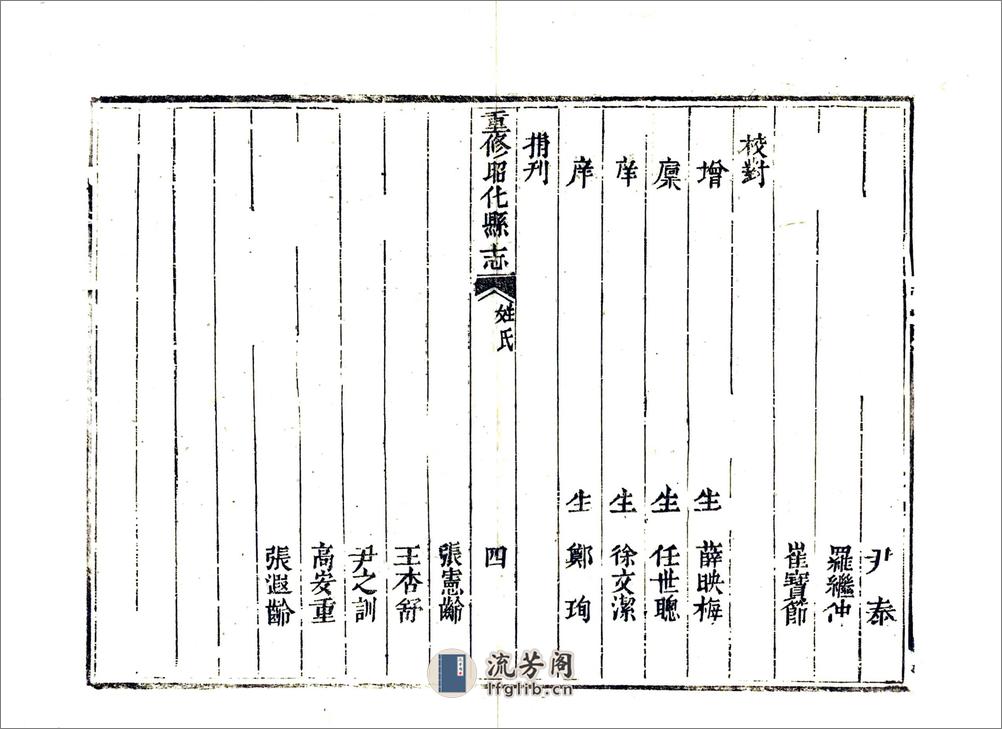 尹泰
羅繼仲
崔寶節
校對
增生薛映梅
廩生任世聰
庠生徐文潔
庠生鄭珣
捐刊
重修昭化縣志
姓氏
四
張憲齡
王杏舒
尹之訓
高安重
張遐齡
流芳阁
lfglib.cn